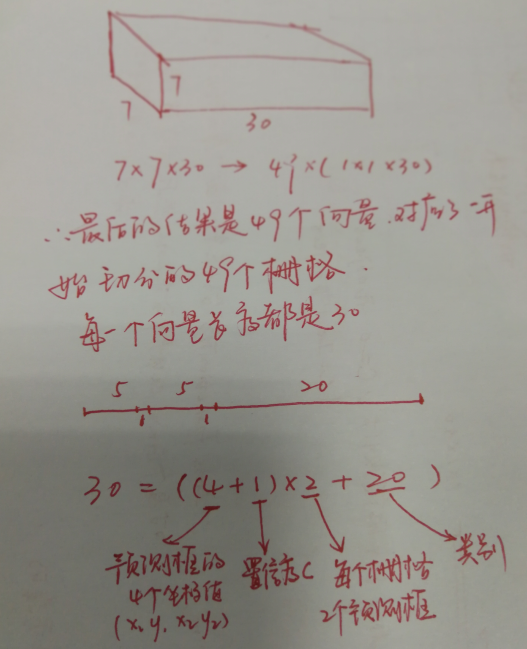 7
7
30
7×7×30 → 49×(1×1×30)
∴最后的结果是49个向量.对应了一开
始切分的49个栅格.
每一个向量长度都是30
5 5 20
30 = ((4+1)×2+20)
预测框的
4个坐标值
(x,y,x2y2)
置信度C
每个栅格
2个预测框
类别